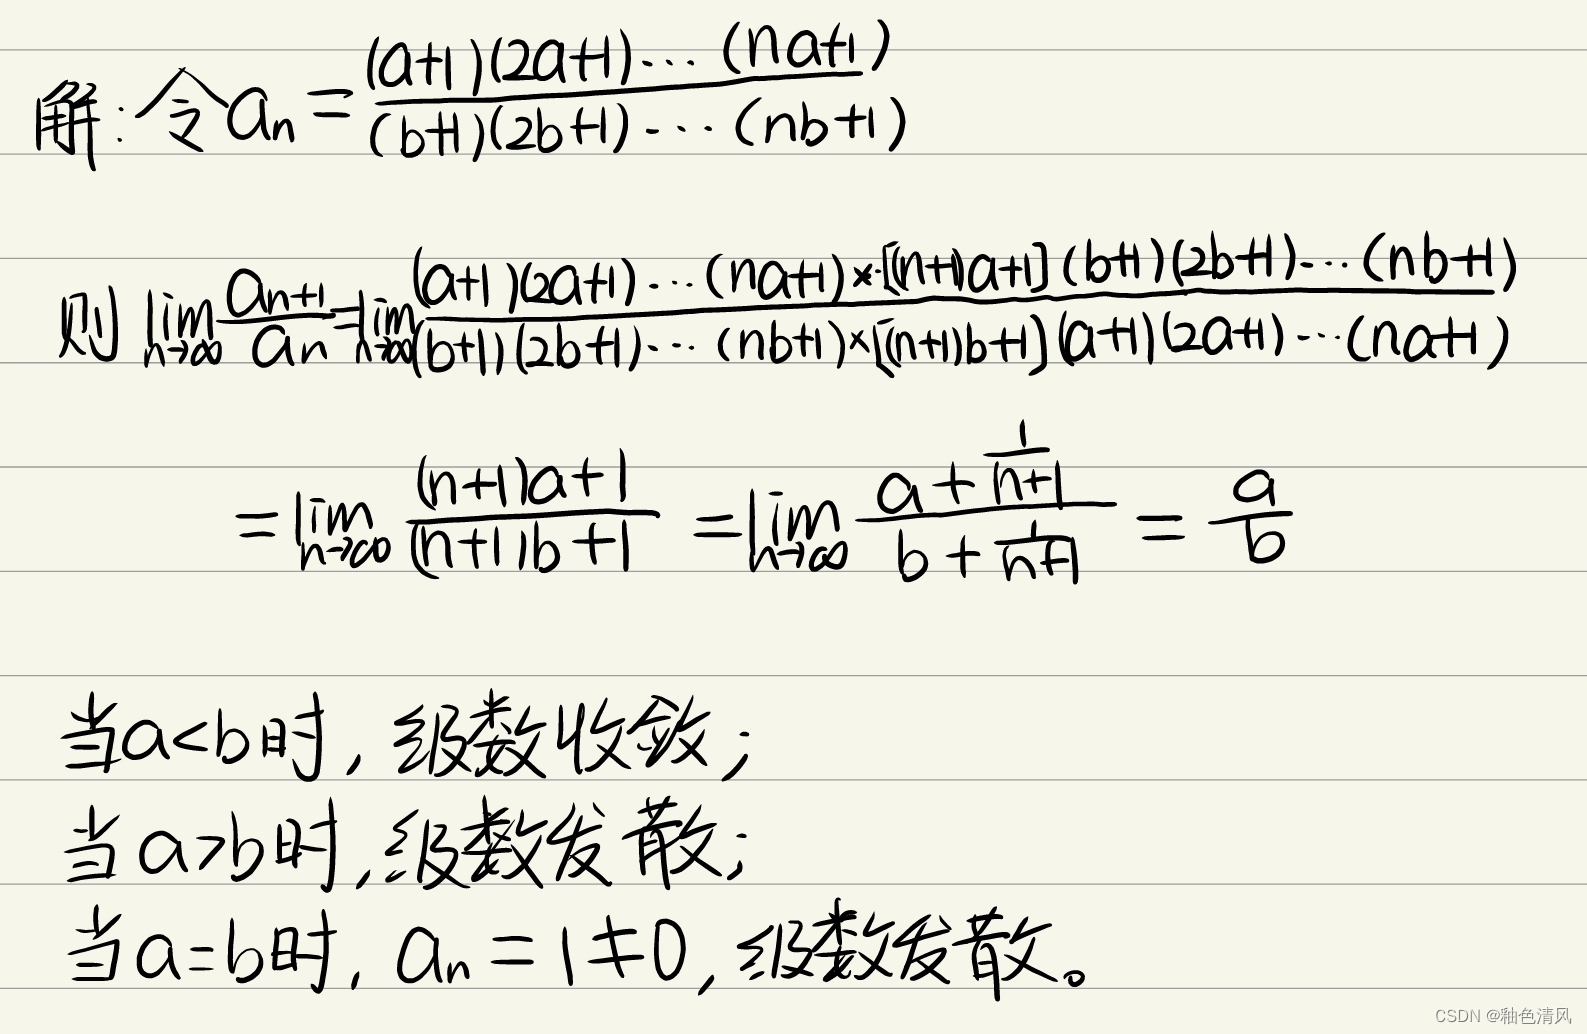 解:令 aₙ = (a+1)(2a+1)···(na+1) / (b+1)(2b+1)···(nb+1)
则 lim n→∞ aₙ₊₁/aₙ = lim n→∞ (a+1)(2a+1)···(na+1)×[(n+1)a+1](b+1)(2b+1)···(nb+1) / (b+1)(2b+1)···(nb+1)×[(n+1)b+1](a+1)(2a+1)···(na+1)
= lim n→∞ ((n+1)a+1)/((n+1)b+1) = lim n→∞ (a+1/(n+1))/(b+1/(n+1)) = a/b
当a<b时,级数收敛;
当a>b时,级数发散;
当a=b时,aₙ=1≠0,级数发散。
CSDN @釉色清风